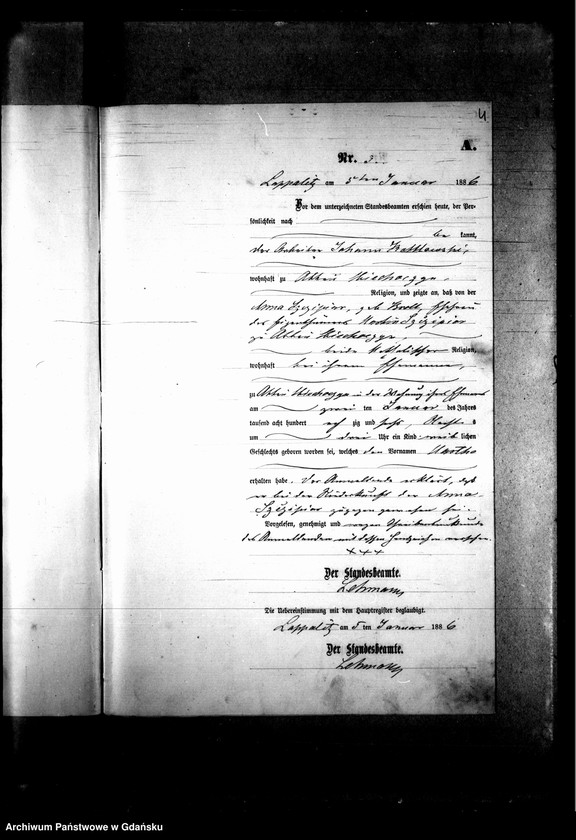 4
A.
Nr. 3.
Lappalitz am 5ten Januar 1886
Vor dem unterzeichneten Standesbeamten erschien heute, der Per-
sönlichkeit nach
be kannt,
der Arbeiter Johann
wohnhaft zu Abbau
Religion, und zeigte an, daß von der
Anna Szczipior, geb. Ehefrau
des Eigenthümers Szczipior
zu Abbau
beide katholischer Religion,
wohnhaft bei ihrem Ehemanne,
zu Abbau in der Wohnung ihres Ehemanns
am zwei ten Januar des Jahres
tausend acht hundert acht zig und sechs, Nachts
um drei Uhr ein Kind weib lichen
Geschlechts geboren worden sei, welches den Vornamen Martha
erhalten habe. Der Anmeldende erklärt, daß
er bei der Niederkunft der Anna
Szczipior zugegen gewesen sei.
Vorgelesen, genehmigt und wegen
des Anmeldenden mit dessen Handzeichen versehen.
+++
Der Standesbeamte.
Lehmann
Die Uebereinstimmung mit dem Hauptregister beglaubigt.
Lappalitz am 5 ten Januar 1886
Der Standesbeamte.
Lehmann
Archiwum Państwowe w Gdańsku